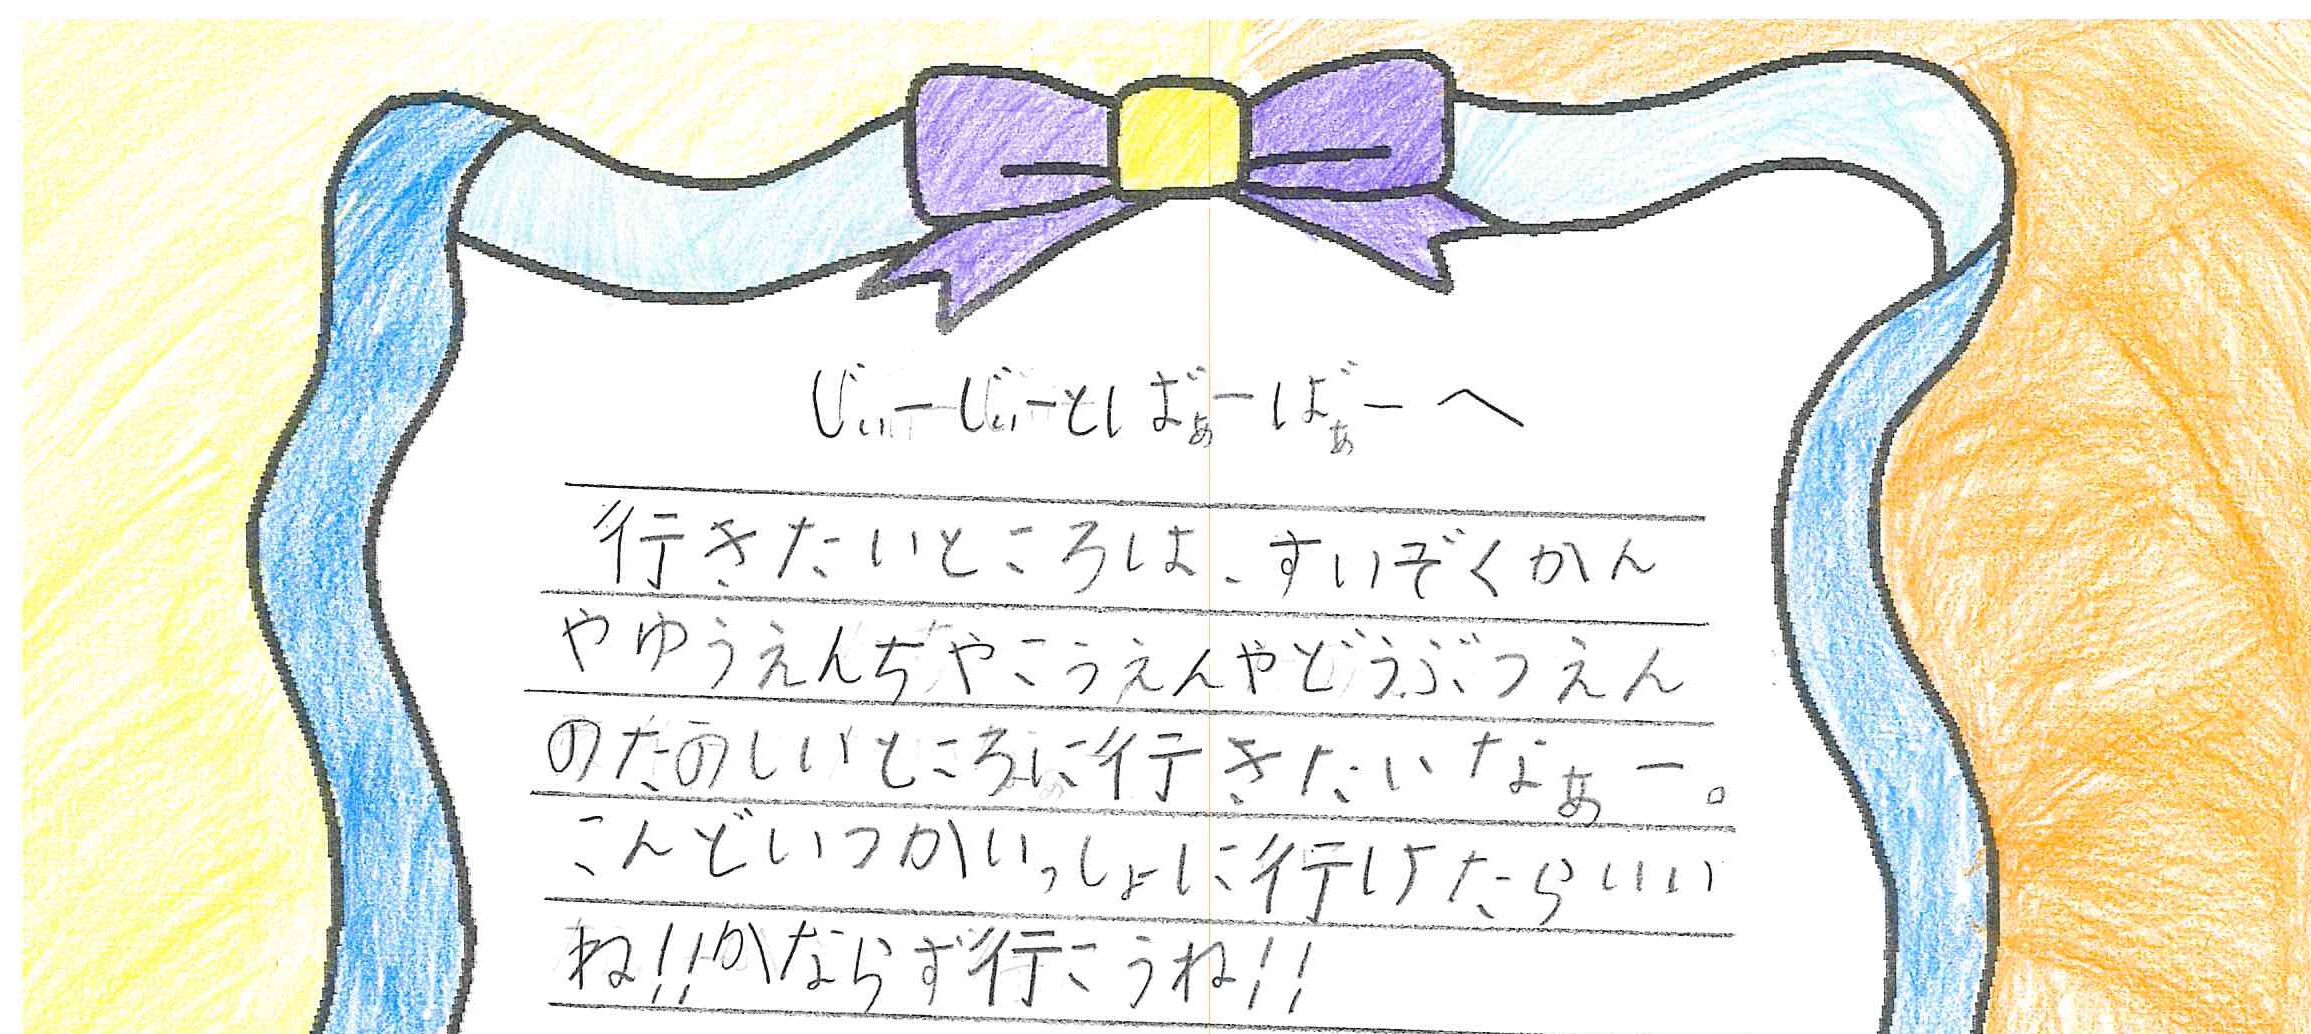 じぃーじぃーとばぁーばぁーへ
行きたいところは、すいぞくかん
やゆうえんちやこうえんやどうぶつえん
のたのしいところに行きたいなぁー。
こんどいつかいっしょに行けたらいい
ね!!かならず行こうね!!